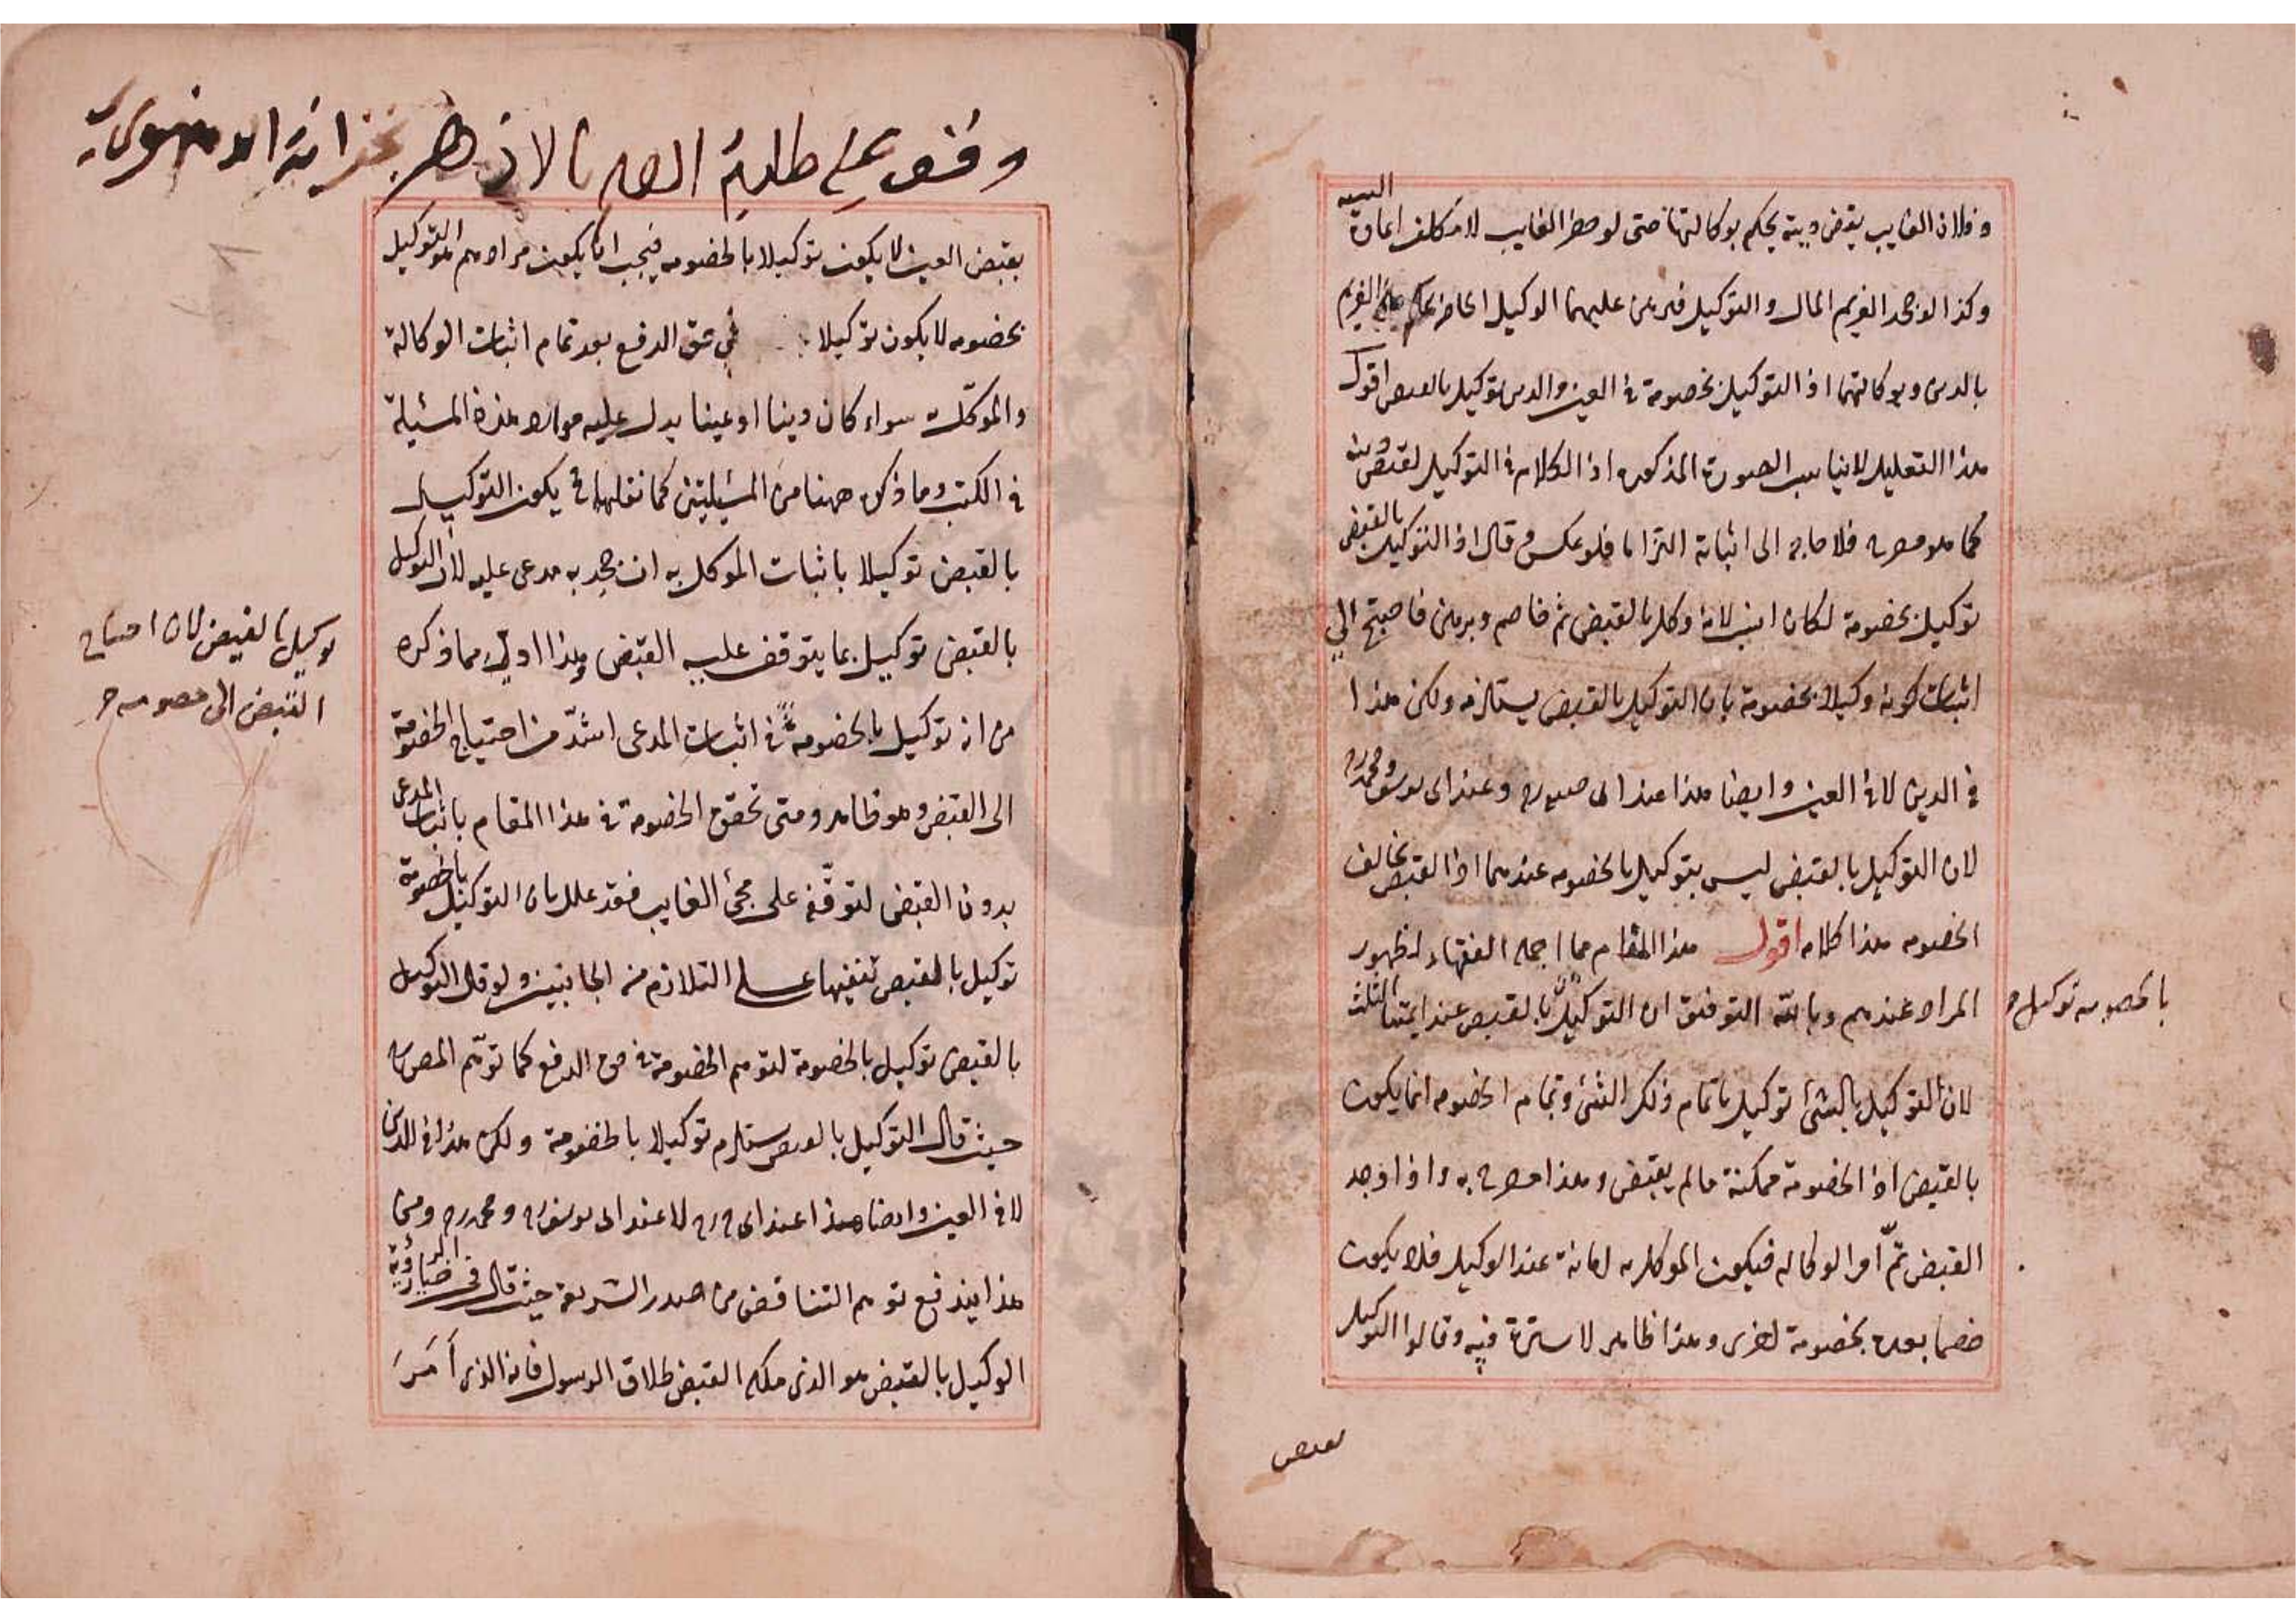 وفلان الغايب يقبض دينه يحكم بوكالتهما حتى لو حضر الغايب لا يكلف اعادة البينة
وكذا لو جحد الغريم المال والتوكيل فبرهن عليهما الوكيل الحاضر يحكم على الغريم
بالدين وبوكالتهما اذ التوكيل بخصومة في العين والدين توكيل بالقبض اقول
هذا التعليل لا يناسب الصورة المذكورة اذ الكلام في التوكيل لقبض دينه
كما هو مصرح فلا حاجة الى اثباته التزاما فلو عكس وقال اذ التوكيل بالقبض
توكيل بخصومة لكان انسب لانه وكل بالقبض ثم خاصم وبرهن فاحتيج الى
اثبات كونه وكيلا بخصومة بان التوكيل بالقبض يستلزمه ولكن هذا
في الدين لا في العين وايضا هذا عند ابى حنيفة وعند ابى يوسف ومحمد رح
لان التوكيل بالقبض ليس بتوكيل بالخصومه عندهما اذ القبض يخالف
الخصومه هذا كلامه اقول هذا المقام مما اجمله الفقهاء لظهور
المراد عندهم وبالله التوفيق ان التوكيل بالقبض عند ايمتنا الثلث
بالخصومه توكيل
لان التوكيل بالشئ توكيل باتمام ذلك الشئ وتمام الخصومه انما يكون
بالقبض اذ الخصومة ممكنة مالم يقبض وهذا مصرح به واذا وجد
القبض تمّ امر الوكاله فيكون الموكل به امانة عند الوكيل فلا يكون
خصما بعده بخصومة اخرى وهذا ظاهر لا سترة فيه وقالوا التوكيل
بقبض
وقف على طلبة العلم بالازهر بخزانة الدمنهورى
بقبض العين لا يكون توكيلا بالخصومه فيجب ان يكون مرادهم التوكيل
بخصومه لا يكون توكيلا في حق الدفع بعد تمام اثبات الوكالة
والموكّل سواء كان دينا او عينا يدل عليه موارد هذه المسئيلة
في الكتب وما ذكره ههنا من المسئيلتين كما نقلها يكون التوكيل
بالقبض توكيلا باثبات الموكل به ان جحد به مدعى عليه لان التوكيل
بالقبض توكيل بما يتوقف عليه القبض وهذا اولى مما ذكره
من انه توكيل بالخصومة في اثبات المدعى اشدّ من احتياج الخصومة
توكيل بالقبض لان احتياج
القبض الى خصومه
الى القبض وهو ظاهر ومتى تحقق الخصومة في هذا المقام باثبات المدعى
بدون القبض لتوقّفه على مجئ الغايب فقد علل بان التوكيل بالخصومة
توكيل بالقبض تنبيها على التلازم من الجانبين ولو قال التوكيل
بالقبض توكيل بالخصومة لتوهم الخصومة في حق الدفع كما توهّم المص
حيث قال التوكيل بالقبض يستلزم توكيلا بالخصومة ولكن هذا في الدين
لا في العين وايضا هذا عند ابى ح رح لا عند ابى يوسف رح ومحمد رح ومن
هذا يندفع توهم التناقض من صدر الشريعة حيث قال في خيار الرؤية
الوكيل بالقبض هو الذى ملكه القبض طلاق الرسول فانه الذى اَمَرَ